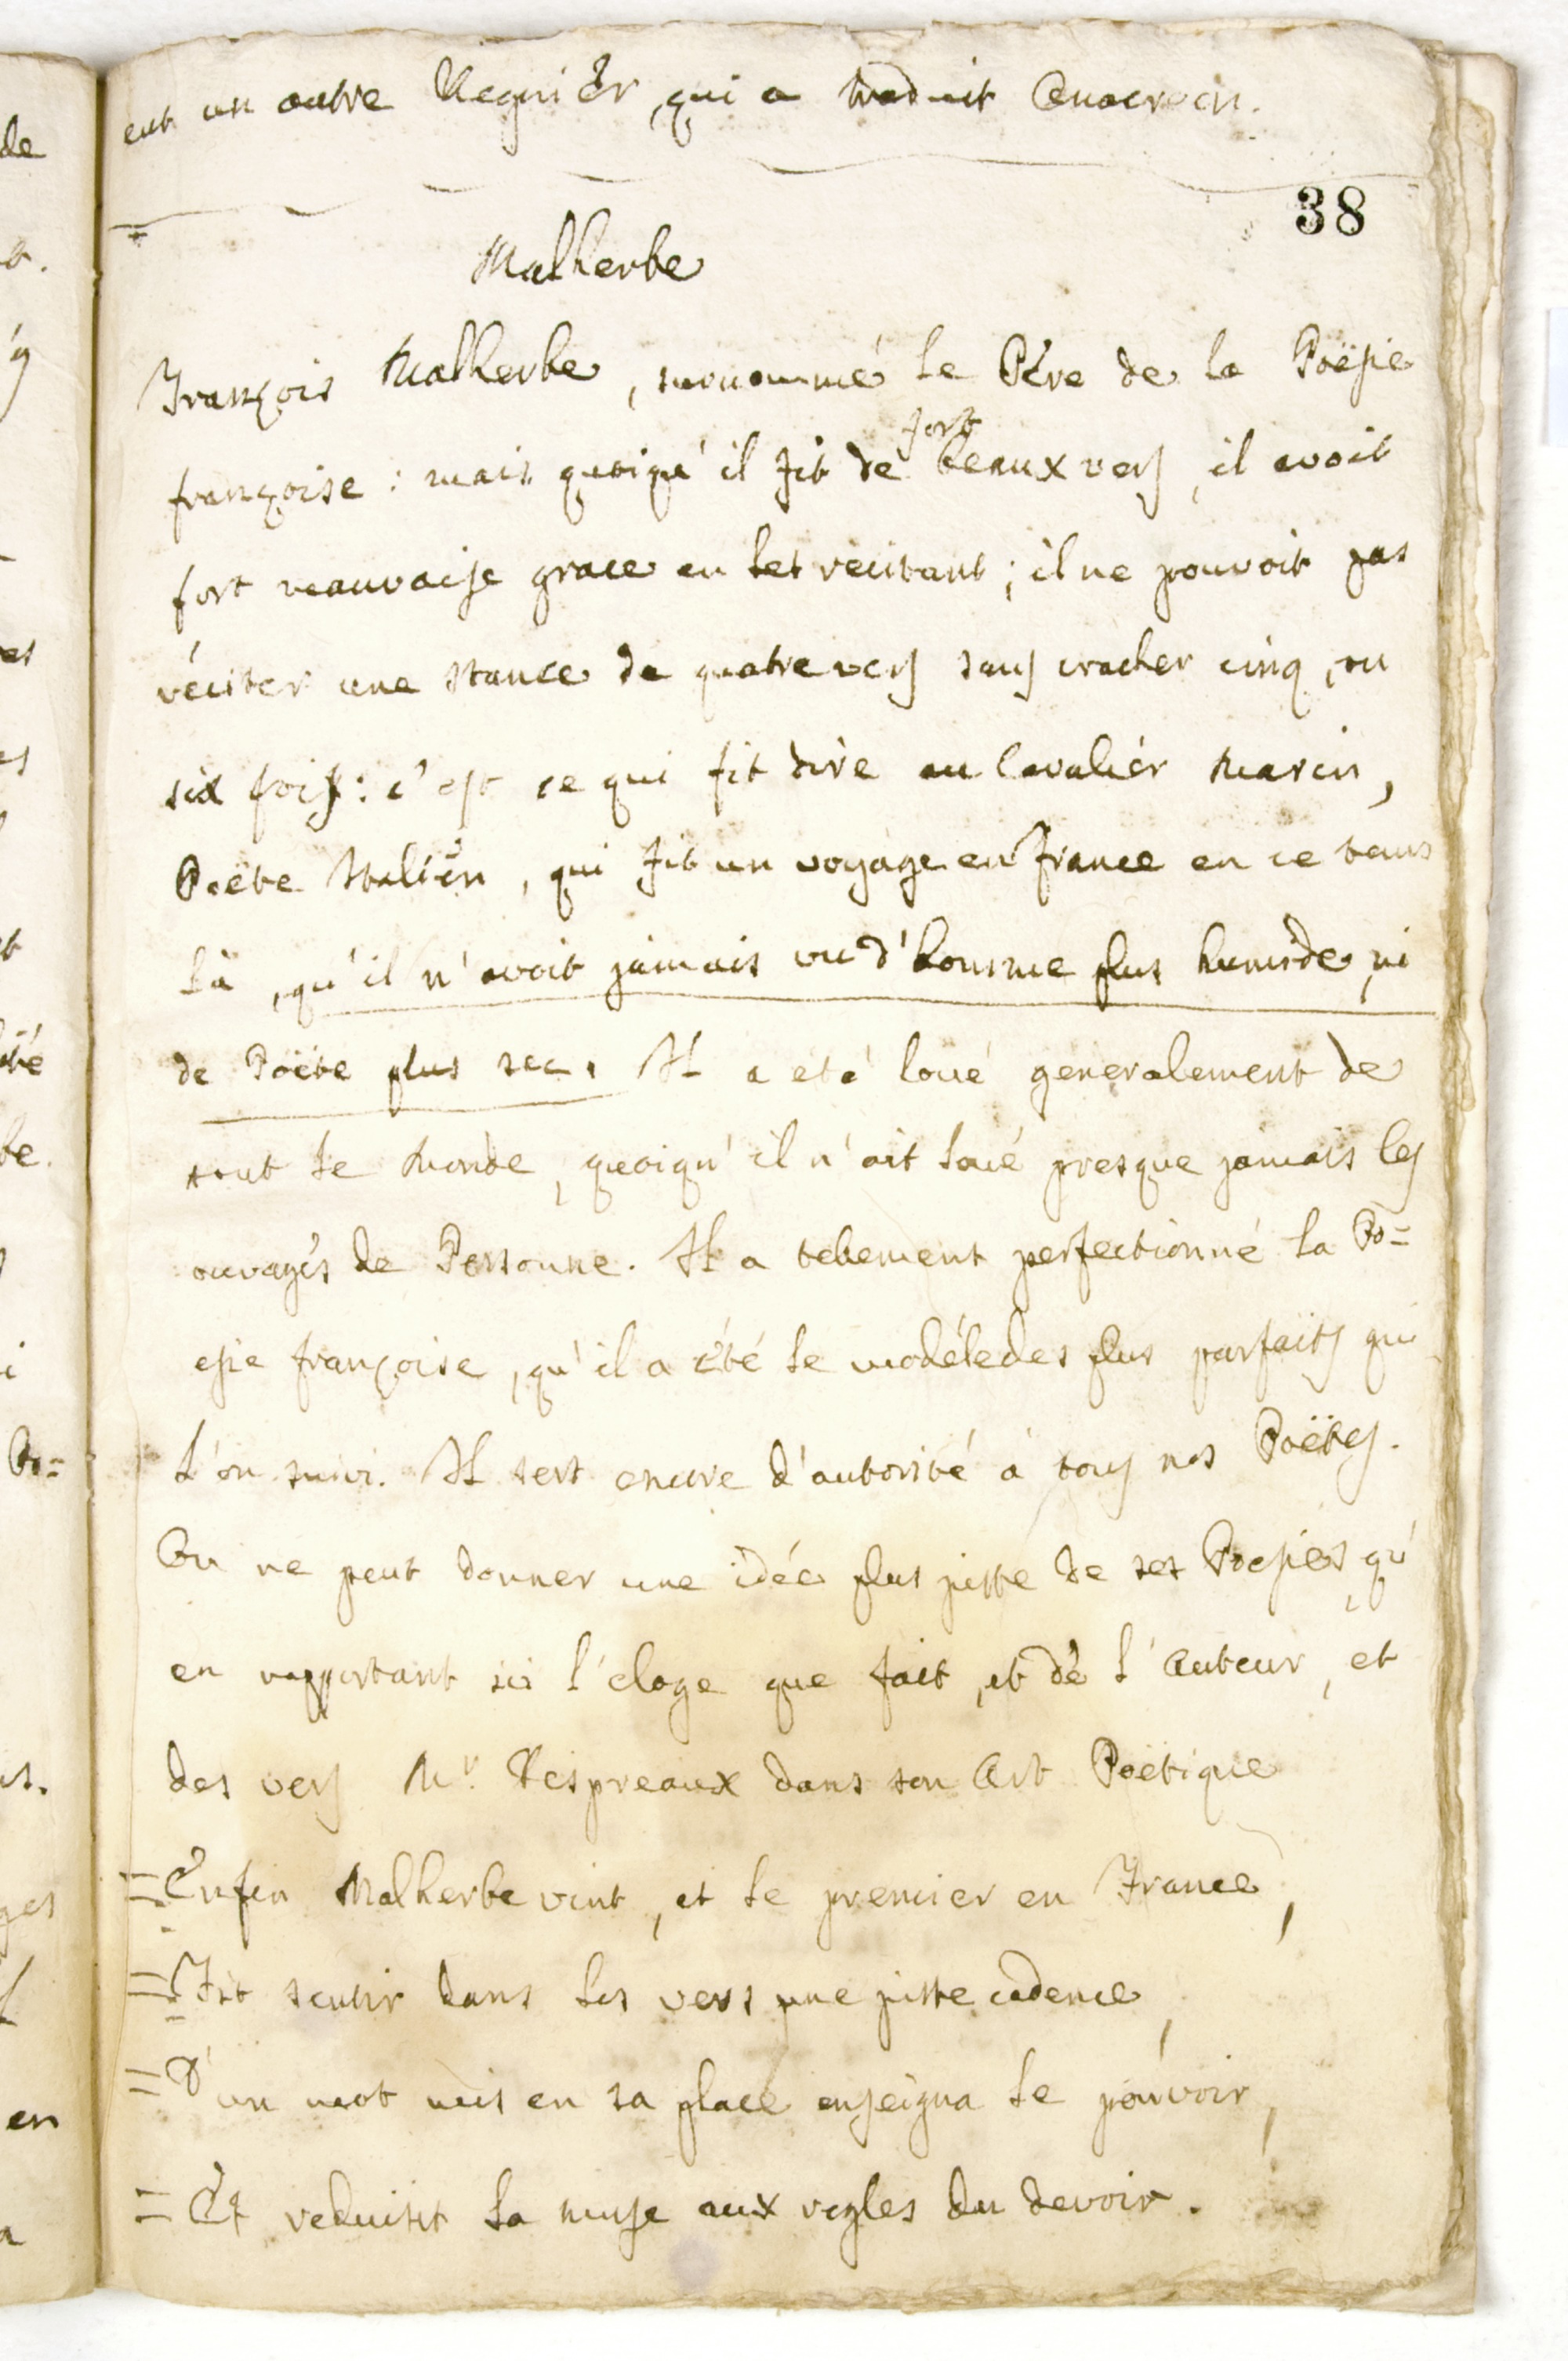 eut un autre Regniér, qui a traduit Anacreon.
38
Malherbe
François Malherbe, surnommé le Pére de la Poësie
françoise : mais quoiqu'il fit de fort beaux vers, il avoit
fort mauvaise grace en les récitant ; il ne pouvoit pas
réciter une stance de quatre vers sans cracher cinq, ou
six fois : c'est ce qui fit dire au Cavaliér Marin,
Poëte Italien, qui fit un voyage en France en ce tems
là, qu'il n'avoit jamais vu d'homme plus humide, ni
de Poëte plus sec. Il a eté loué generalement de
tout le Monde, quoiqu'il n'ait loué presque jamais les
ouvages de Personne. Il a tellement perfectionné la Po=
esie françoise, qu'il a été le modéle des plus parfaits qui
l'on suivi. Il sert encore d'autorité à tous nos Poëtes.
On ne peut donner une idée plus juste de ses Poesies, qu'
en rapportant ici l'eloge que fait, et de l'Auteur, et
des vers Mr. Despreaux dans son Art Poëtique
= Enfin Malherbe vint, et le premier en France,
= Fit sentir dans les vers une juste cadence,
= D'un mot mis en sa place enseigna le pouvoir,
= Et reduisit la muse aux regles du devoir.
de
et
té
be.
Po=
en